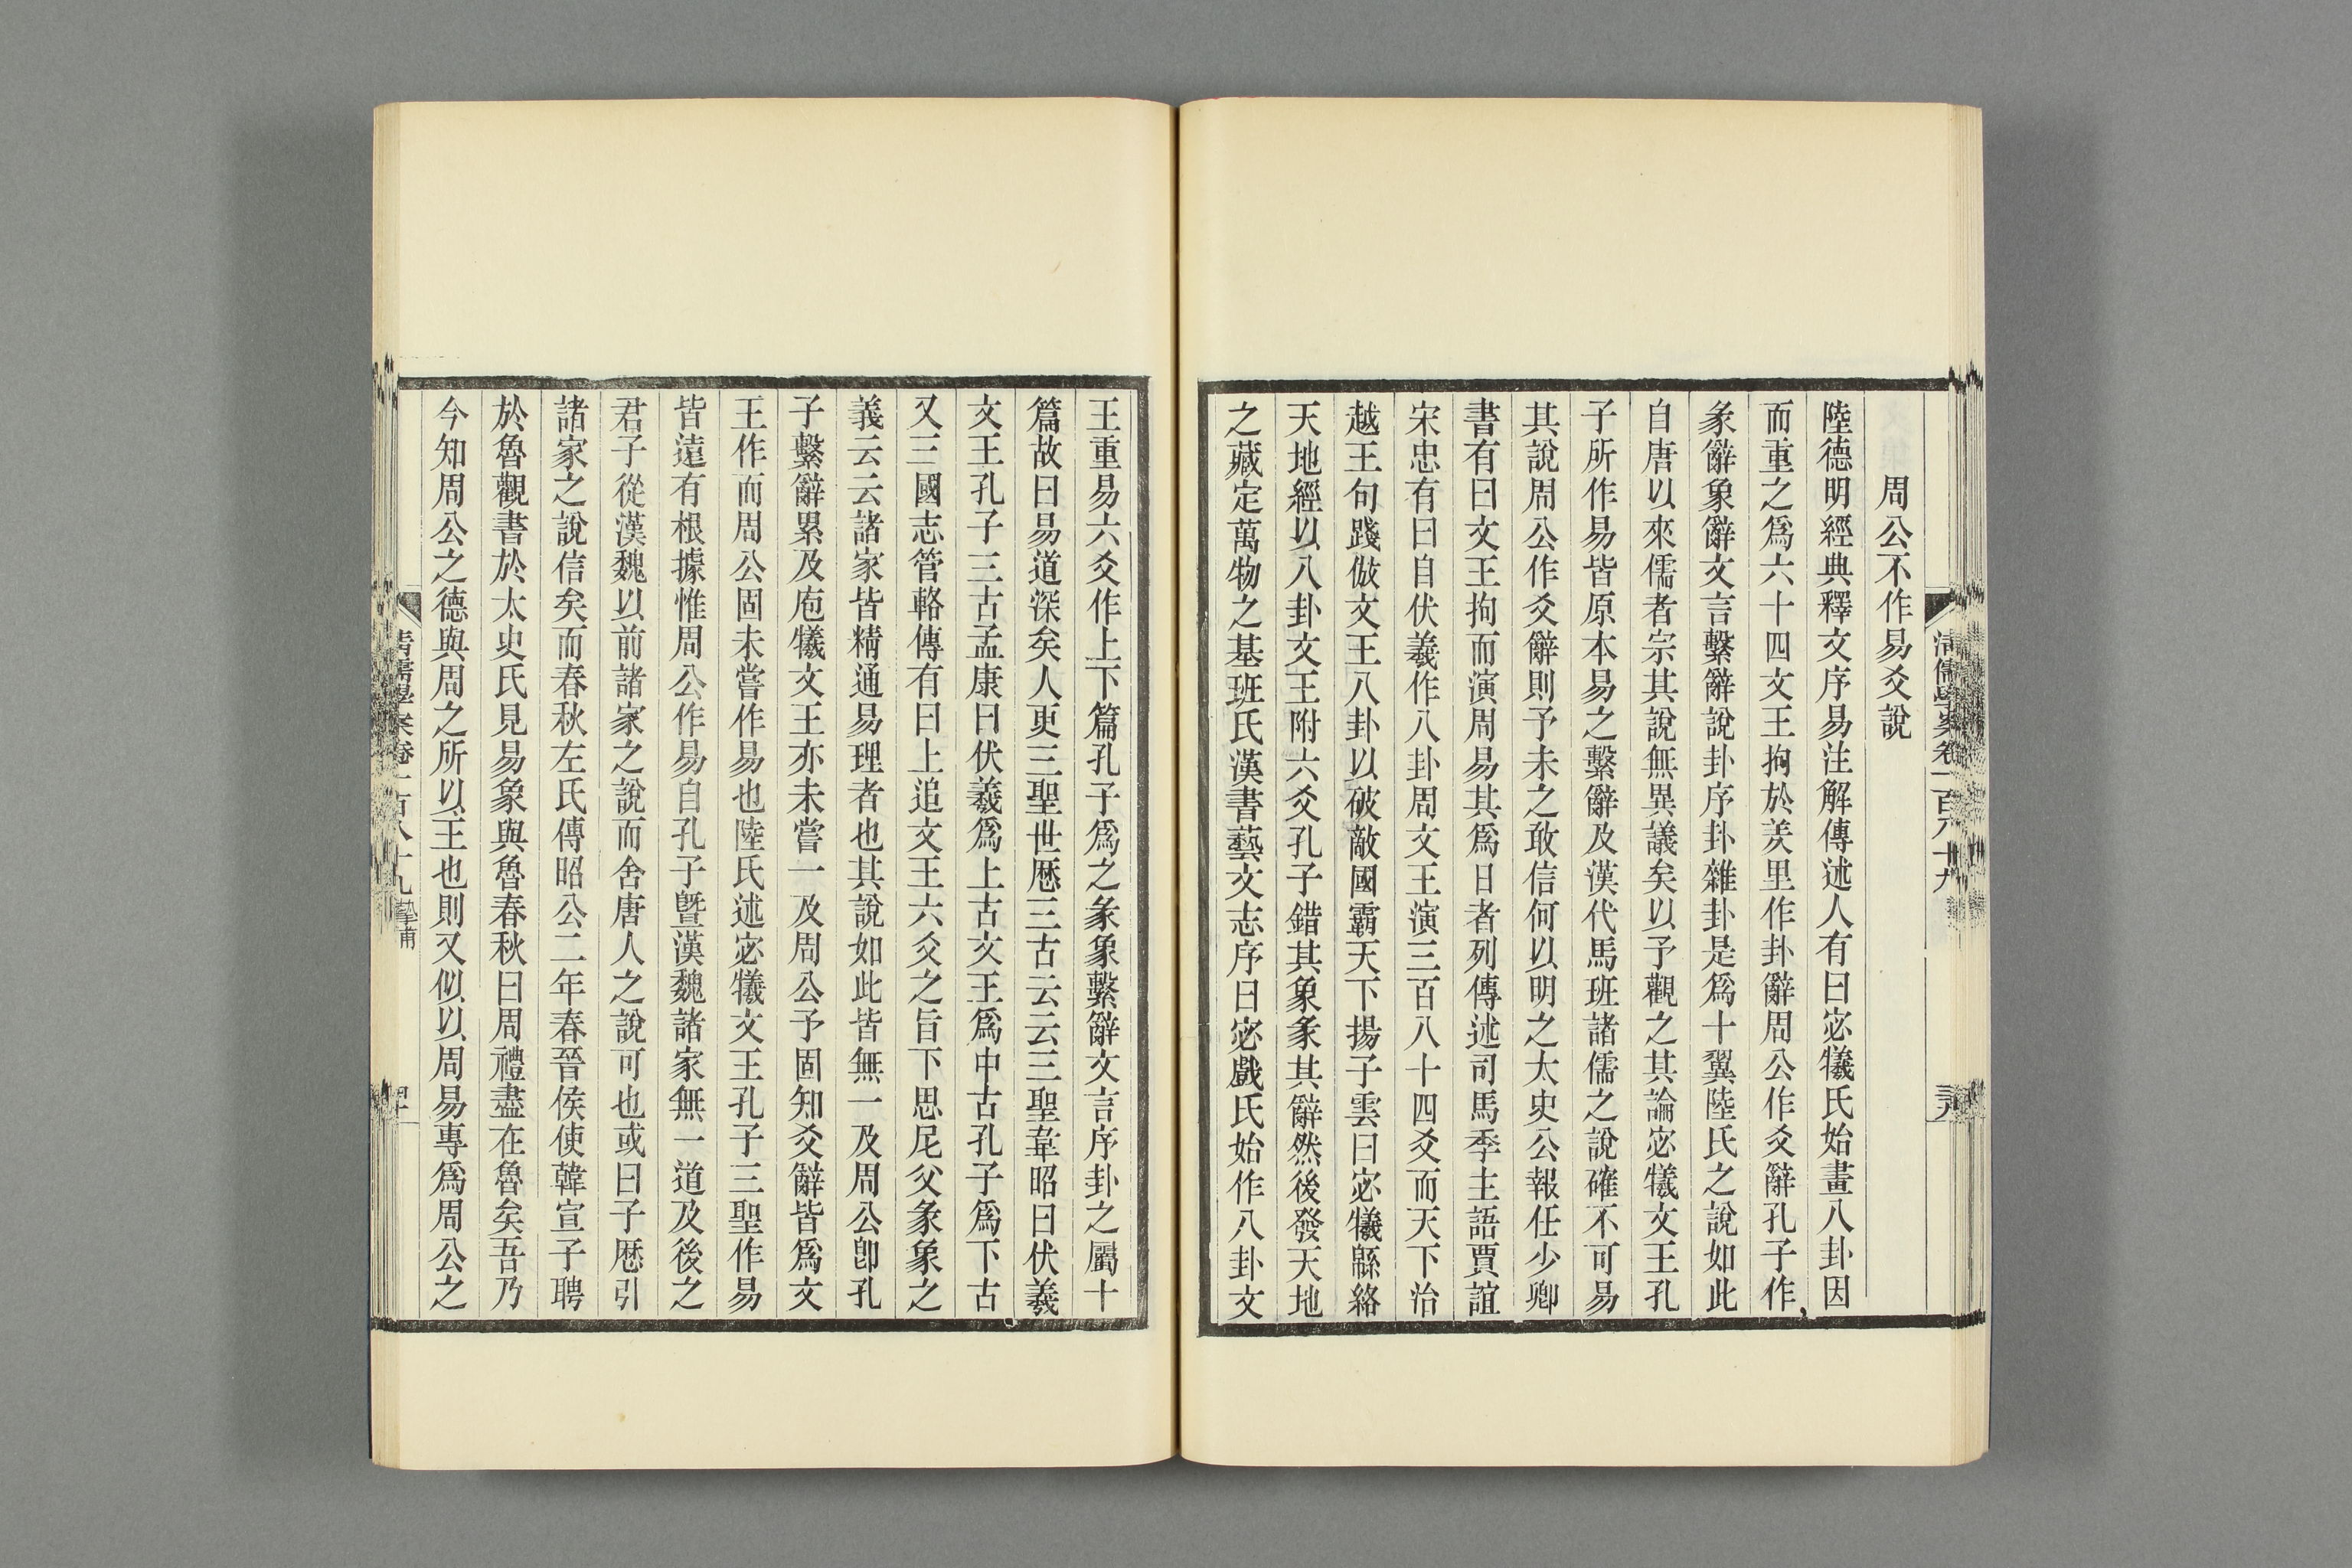 清儒學案卷一百八十九
周公不作易爻說
陸德明經典釋文序易注解傳述人有曰宓犧氏始畫八卦因
而重之爲六十四文王拘於羑里作卦辭周公作爻辭孔子作
彖辭象辭文言繫辭說卦序卦雜卦是爲十翼陸氏之說如此
自唐以來儒者宗其說無異議矣以予觀之其論宓犧文王孔
子所作易皆原本易之繫辭及漢代馬班諸儒之說確不可易
其說周公作爻辭則予未之敢信何以明之太史公報任少卿
書有曰文王拘而演周易其爲日者列傳述司馬季主語賈誼
宋忠有曰自伏羲作八卦周文王演三百八十四爻而天下治
越王句踐倣文王八卦以破敵國霸天下揚子雲曰宓犧緜絡
天地經以八卦文王附六爻孔子錯其象彖其辭然後發天地
之藏定萬物之基班氏漢書藝文志序曰宓戲氏始作八卦文
王重易六爻作上下篇孔子爲之彖象繫辭文言序卦之屬十
篇故曰易道深矣人更三聖世歷三古云云三聖韋昭曰伏羲
文王孔子三古孟康曰伏羲爲上古文王爲中古孔子爲下古
又三國志管輅傳有曰上追文王六爻之旨下思尼父彖象之
義云云諸家皆精通易理者也其說如此皆無一及周公卽孔
子繫辭累及庖犧文王亦未嘗一及周公予固知爻辭皆爲文
王作而周公固未嘗作易也陸氏述宓犧文王孔子三聖作易
皆遠有根據惟周公作易自孔子曁漢魏諸家無一道及後之
君子從漢魏以前諸家之說而舍唐人之說可也或曰子歷引
諸家之說信矣而春秋左氏傳昭公二年春晉侯使韓宣子聘
於魯觀書於太史氏見易象與魯春秋曰周禮盡在魯矣吾乃
今知周公之德與周之所以王也則又似以周易專爲周公之
清儒學案卷一百八十九